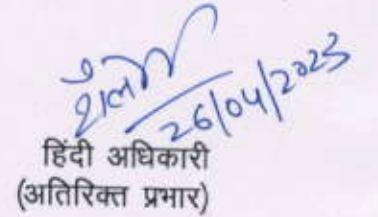 26/04/2023
हिंदी अधिकारी
(अतिरिक्त प्रभार)